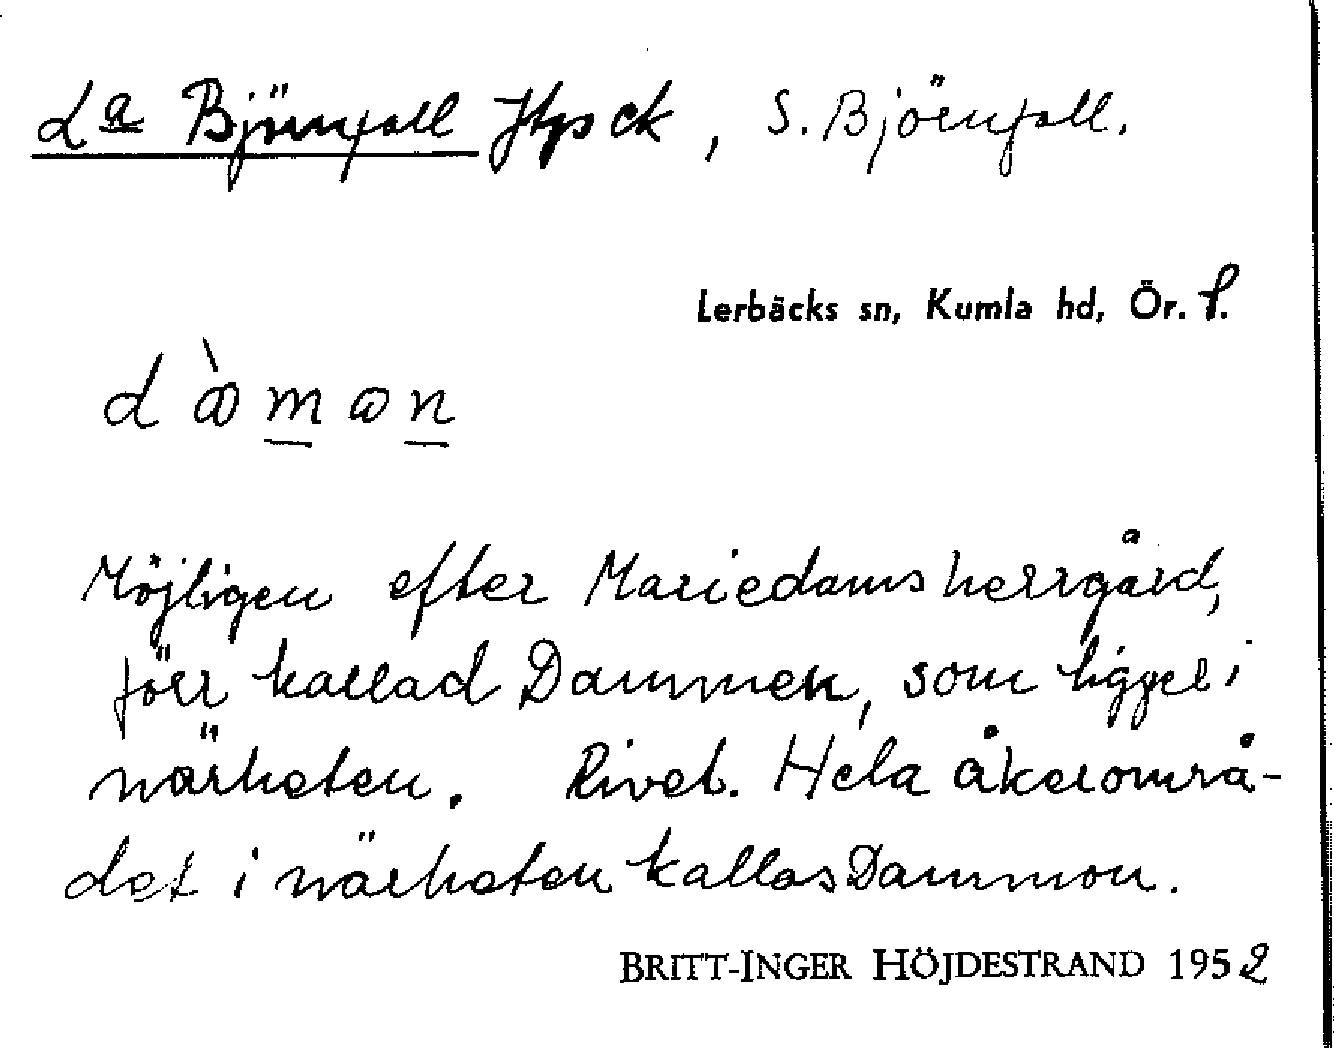 La Björnfall Htp ck, S. Björnfall.
Lerbäcks sn, Kumla hd, Ör. l.
Möjligen efter Mariedams herrgård,
förr kallad Dammen, som ligger i
närheten. Rivet. Hela åkerområ-
det i närheten kallas Dammon.
BRITT-INGER HÖJDESTRAND 1952